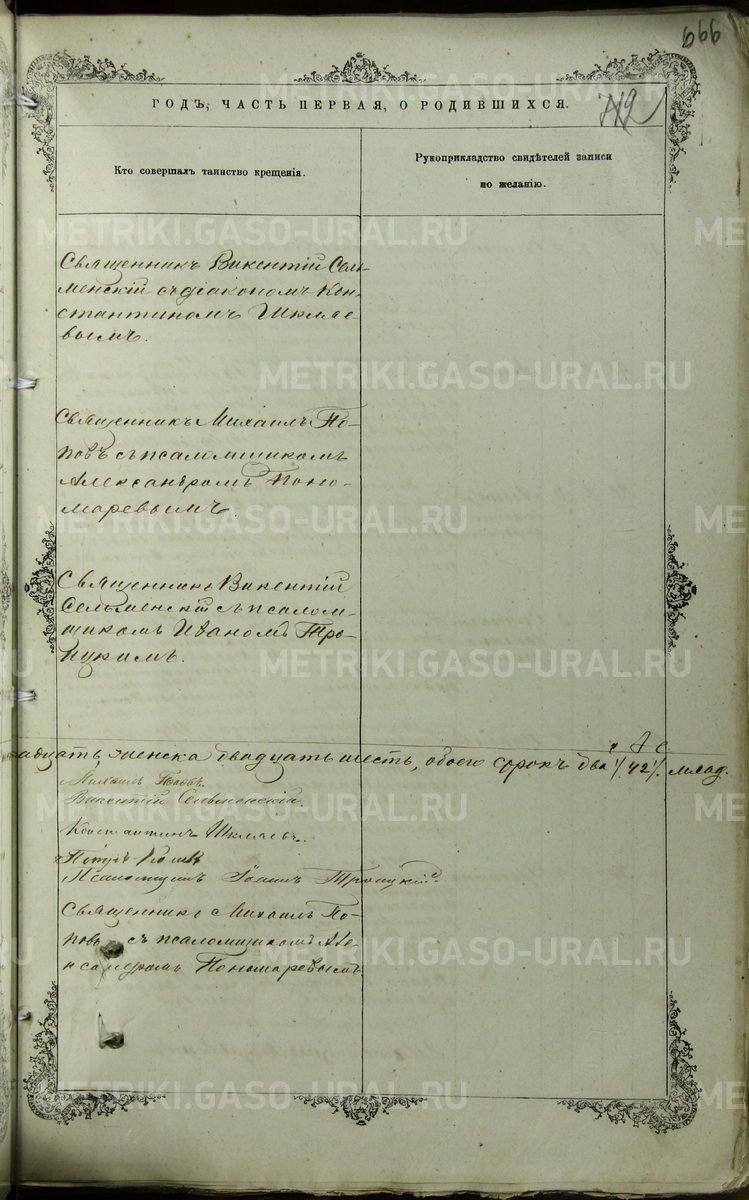 666
712
ГОДЪ, ЧАСТЬ ПЕРВАЯ, О РОДИВШИХСЯ.
Кто совершалъ таинство крещенія.
Рукоприкладство свидѣтелей записи
по желанію.
Священникъ Викентій Сель-
менскій съ діакономъ Кон-
стантиномъ Шкляе-
вымъ.
Священникъ Михаилъ По-
повъ съ псаломщикомъ
Александромъ Поно-
маревымъ.
Священникъ Викентій
Сельменскій съ псалом-
щикомъ Иваномъ Тро-
ицкимъ.
женска двадцать шесть, обоего сорокъ два /42/ млад.
Михаилъ Поповъ.
Викентій Сельменскій.
Константинъ Шкляевъ.
Псаломщикъ Іоаннъ Троицкій.
Священникъ Михаилъ По-
повъ съ псаломщикомъ Але-
ксандромъ Пономаревымъ.
METRIKI.GASO-URAL.RU